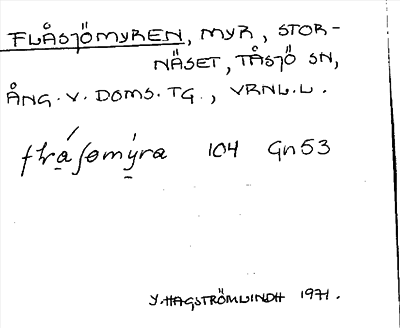 FLÅSJÖMYREN, MYR, STOR-
NÄSET, TÅSJÖ SN,
ÅNG. V. DOMS. TG., VRNL.L.
104 Gn 53
Y. HAGSTRÖMLINDH 1971.